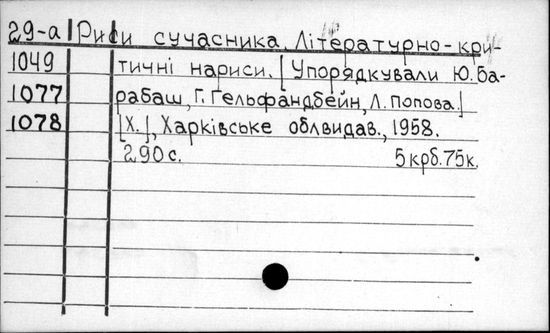 29-а Риси сучасника. Літературно-кри-
1049 тичні нариси. [Упорядкували Ю. Ба-
1077 рабаш, Г. Гельфандбейн, Л. Попова.]
1078 [Х.], Харківське облвидав., 1958.
290 с. 5 крб. 75 к.